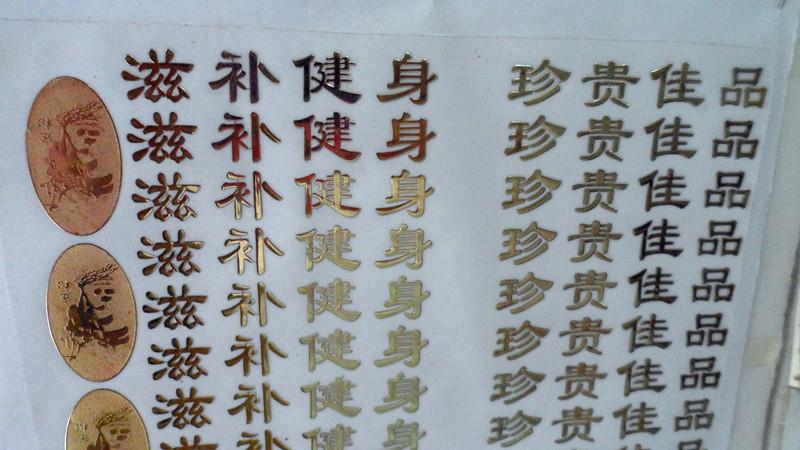 滋补健身 珍贵佳品
滋补健身 珍贵佳品
滋补健身 珍贵佳品
滋补健身 珍贵佳品
滋补健身 珍贵佳品
滋补健身 珍贵佳品
滋补健身 珍贵佳品
滋补健身 珍贵佳品